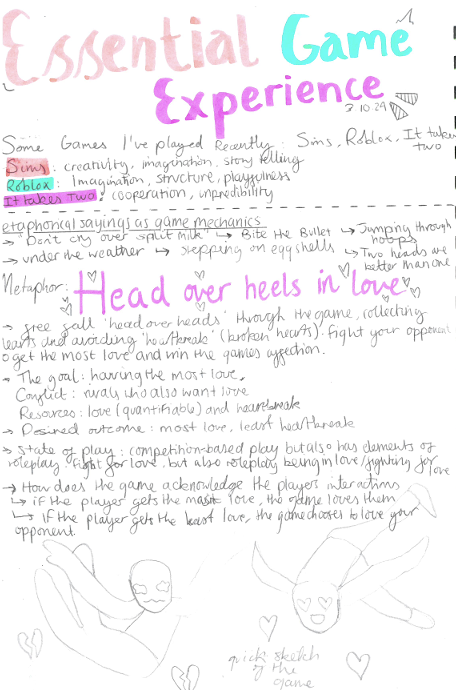 Essential Game
Experience
3.10.24
Some Games I've played Recently: Sims, Roblox, It takes
two
Sims: creativity, imagination, story telling
Roblox: Imagination, structure, playfulness
It takes Two: cooperation, unpredibility
etaphorical sayings as game mechanics
→ "Don't cry over spilt milk" ↳ Bite the Bullet ↳ Jumping through
hoops
→ under the weather ↳ stepping on eggshells ↳ Two heads are
better than one
Metaphor: Head over heels in love
→ free fall 'head over heads' through the game, collecting
hearts and avoiding 'heartbreak' (broken hearts). fight your opponent
o get the most love and win the games affection.
→ The goal: having the most love,
Conflict: rivals who also want love
Resources: love (quantifiable) and heartbreak
→ Desired outcome: most love, least heartbreak
→ state of play: competition-based play but also has elements of
roleplay. fight for love, but also roleplay being in love/fighting for
love
→ How does the game acknowledge the players interactions
↳ if the player gets the most love, the game loves them
↳ If the player gets the least love, the game chooses to love your
opponent.
quick sketch
of the
game